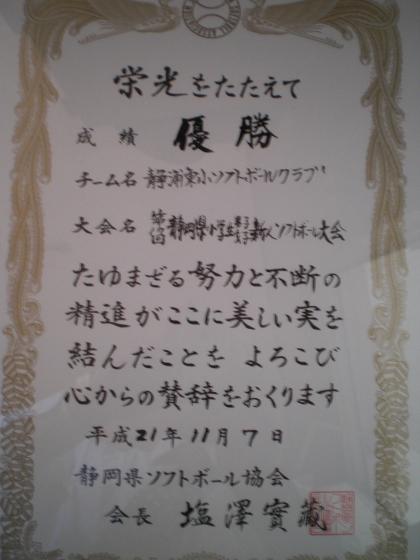 栄光をたたえて
成績 優勝
チーム名 静浦東小ソフトボールクラブ
大会名 静岡県小学生男子女子新人ソフトボール大会
たゆまざる努力と不断の
精進がここに美しい実を
結んだことを よろこび
心からの賛辞をおくります
平成21年11月7日
静岡県ソフトボール協会
会長 塩澤實藏